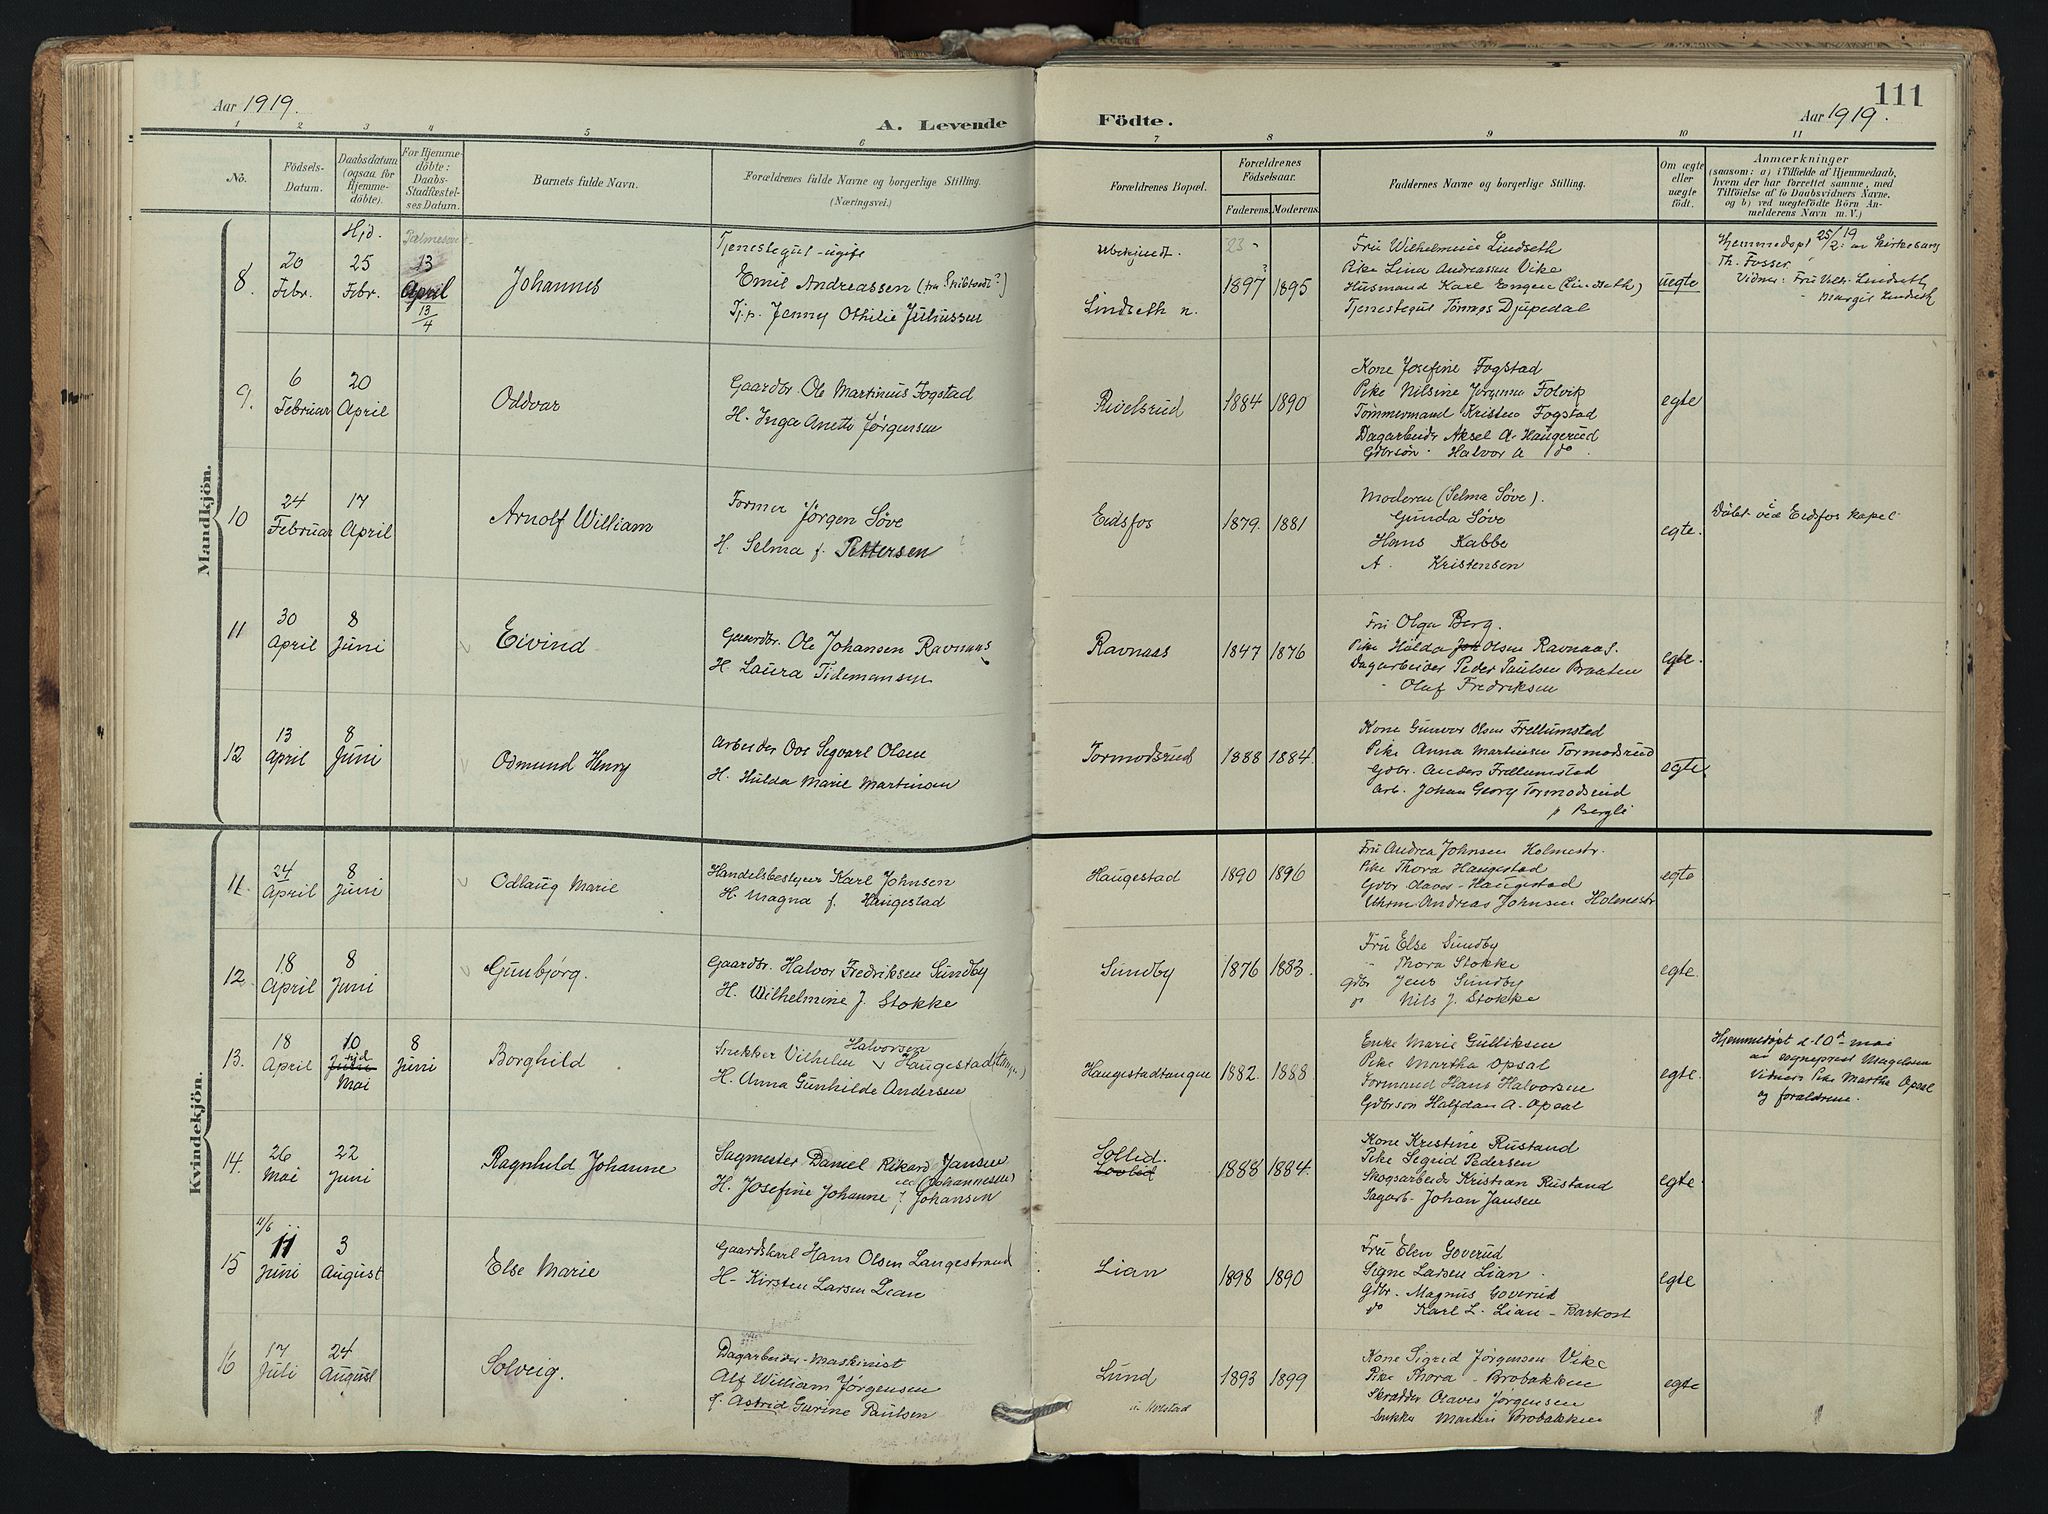 Aar 1919.
A. Levende
Födte.
Aar 1919.
111
1 2 3 4 5 6 7 8 9 10 11
No.
Födsels-Datum.
Daabsdatum (ogsaa for Hjemme-döbte).
For Hjemme-döbte: Daabs-Stadfæstel-ses Datum.
Barnets fulde Navn.
Forældrenes fulde Navne og borgerlige Stilling.
(Næringsvei.)
Forældrenes Bopæl.
Forældrenes Födselsaar.
Faderens. Moderens.
Faddernes Navne og borgerlige Stilling.
Om ægte eller uægte födt.
Anmærkninger
(saasom: a) i Tilfælde af Hjemmedaab,
hvem der har forrettet samme, med
Tilföielse af to Daabsvidners Navne.
og b) ved uægtefödte Börn An-
melderens Navn m. V.)
Mandkjön.
8. 20 Febr. Hjd. 25 Febr. 13 April 13/4
Johannes
Tjenestegut - ugift
Emil Andreassen
Tj.p. Jenny Othilie Juliussen
Ubekjendt.
Lindseth n.
23
1897? 1895
Fru Wilhelmine Lindseth
Pike Lina Andreassen Vike
Husmand Karl Engene (Lindseth)
Tjenestegut Tönnes Djupedal
uegte
Hjemmedøpt 25/2 19 av kirkesang
Th. Fosser
Vidner: Fru Vilh. Lindseth
" Margit Lindseth
9. 6 Februar 20 April
Oddvar
Gaardbr. Ole Martinius Fogstad
H. Inga Anette Jørgensen
Rivelsrud
1884 1890
Kone Josefine Fogstad
Pike Nilsine Jørgensen Folvik
Tømmermand Kristen Fogstad
Dagarbeider Aksel A. Haugerud
Gdbrsøn. Halvor A do.
egte
10 24 Februar 17 April
Arnolf William
Former Jörgen Söve
H. Selma f. Pettersen
Eidsfos
1879. 1881
Moderen (Selma Söve).
Gunda Söve
Hans Kabbe
A. Kristensen
egte.
Døbt ved Eidsfos kapel
11 30 April 8 Juni
Eivind
Gaardbr. Ole Johansen Ravnaas
H. Laura Tidemansen
Ravnaas
1847 1876
Fru Olga Berg.
Pike Hulda Joh Olsen Ravnaas.
Dagarbeider Peder Paulsen Braaten
- Oluf Fredriksen
egte.
12 13 April 8 Juni
Odmund Henry
Arbeider Ove Segvart Olsen
H. Hulda Marie Martinsen
Tormodsrud
1888 1884.
Kone Gunvor Olsen Frellumstad
Pike Anna Martinsen Tormodsrud
Gdbr. Anders Frellumstad
Arb. Johan Georg Tormodsrud
p Bergli
egte
Kvindekjön.
11. 24 April 8 Juni
Odlaug Marie
Handelsbestyrer Karl Johnsen
H. Magna f. Haugestad
Haugestad
1890 1896
Fru Andrea Johnsen Holmestr.
Pike Thora Haugestad
Gdbr Olaves - Haugestad
Uhrm. Andreas Johnsen Holmestr
egte
12. 18 April 8 Juni
Gunbjörg.
Gaardbr. Halvor Fredriksen Sundby
H. Wilhelmine J. Stokke
Sundby
1876 1883.
Fru Else Sundby
" Thora Stokke
Gdbr Jens Sundby
do Nils J. Stokke
egte.
13. 18 April 10 Juni Mai 8 Juni
Borghild
Halvorsen
Snekker Vilhelm v Haugestad
H. Anna Gunhilde Andersen
Haugestadtangen
1882. 1888.
Enke Marie Gulliksen
Pike Martha Opsal
Formand Hans Halvorsen
Gdbrsøn Halfdan A. Opsal
egte.
Hjemmedøpt d. 10d mai
av sogneprest Magelssen
Vidner: Pike Martha Opsal
og forældrene.
14. 26 Mai 22 Juni
Ragnhild Johanne
Sagmester Daniel Rikard Jansen
(Johannesen)
H. Josefine Johanne f. Johansen
Sollid.
1888 1884.
Kone Kristine Rustand
Pike Sigrid Pedersen
Skogsarbeider Kristian Rustand
Sagarb. Johan Jansen
egte.
11/6
15 11 Juni 3 August
Else Marie
Gaardskarl Hans Olsen Langestrand
H. Kirsten Larsen Lian
Lian
1898 1890
Fru Elen Goverud
Signe Larsen Lian.
Gdbr. Magnus Goverud
do Karl L. Lian - Barkost
egte
16 17 Juli 24 August
Solveig.
Dagarbeider - Maskinist
Alf William Jørgensen
f. Astrid Gurine Paulsen
Lund
1893 1899
Kone Sigrid Jørgensen Vike
Pike Thora - Brobakken
Skrædder Olaves Jørgensen
Snekker Martin Brobakken
egte